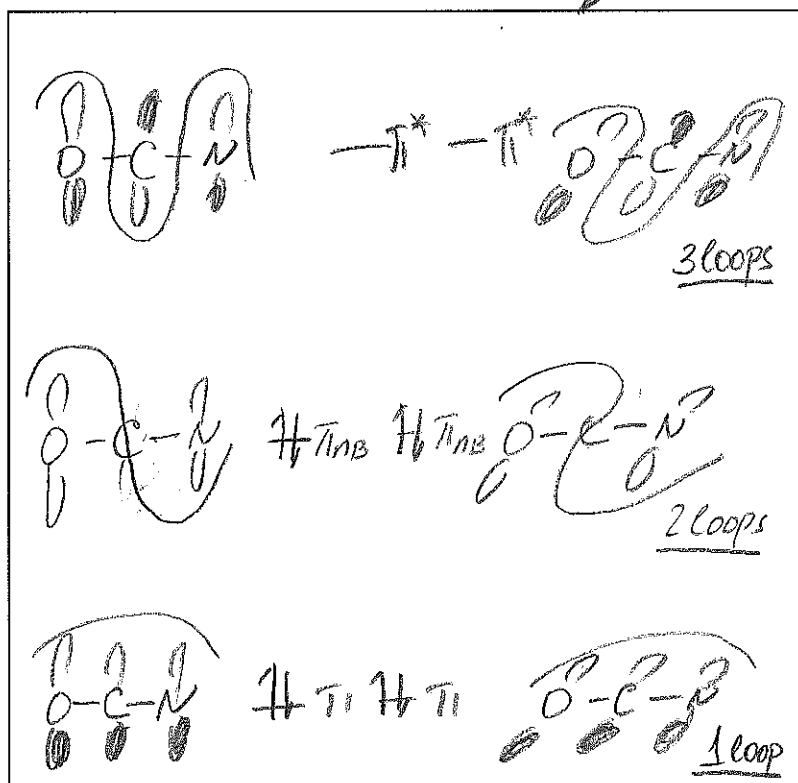 O-C-N —π* —π* O-C-N
3 loops
O-C-N ⥮πnB ⥮πnB O-C-N
2 loops
O-C-N ⥮π ⥮π O-C-N
1 loop